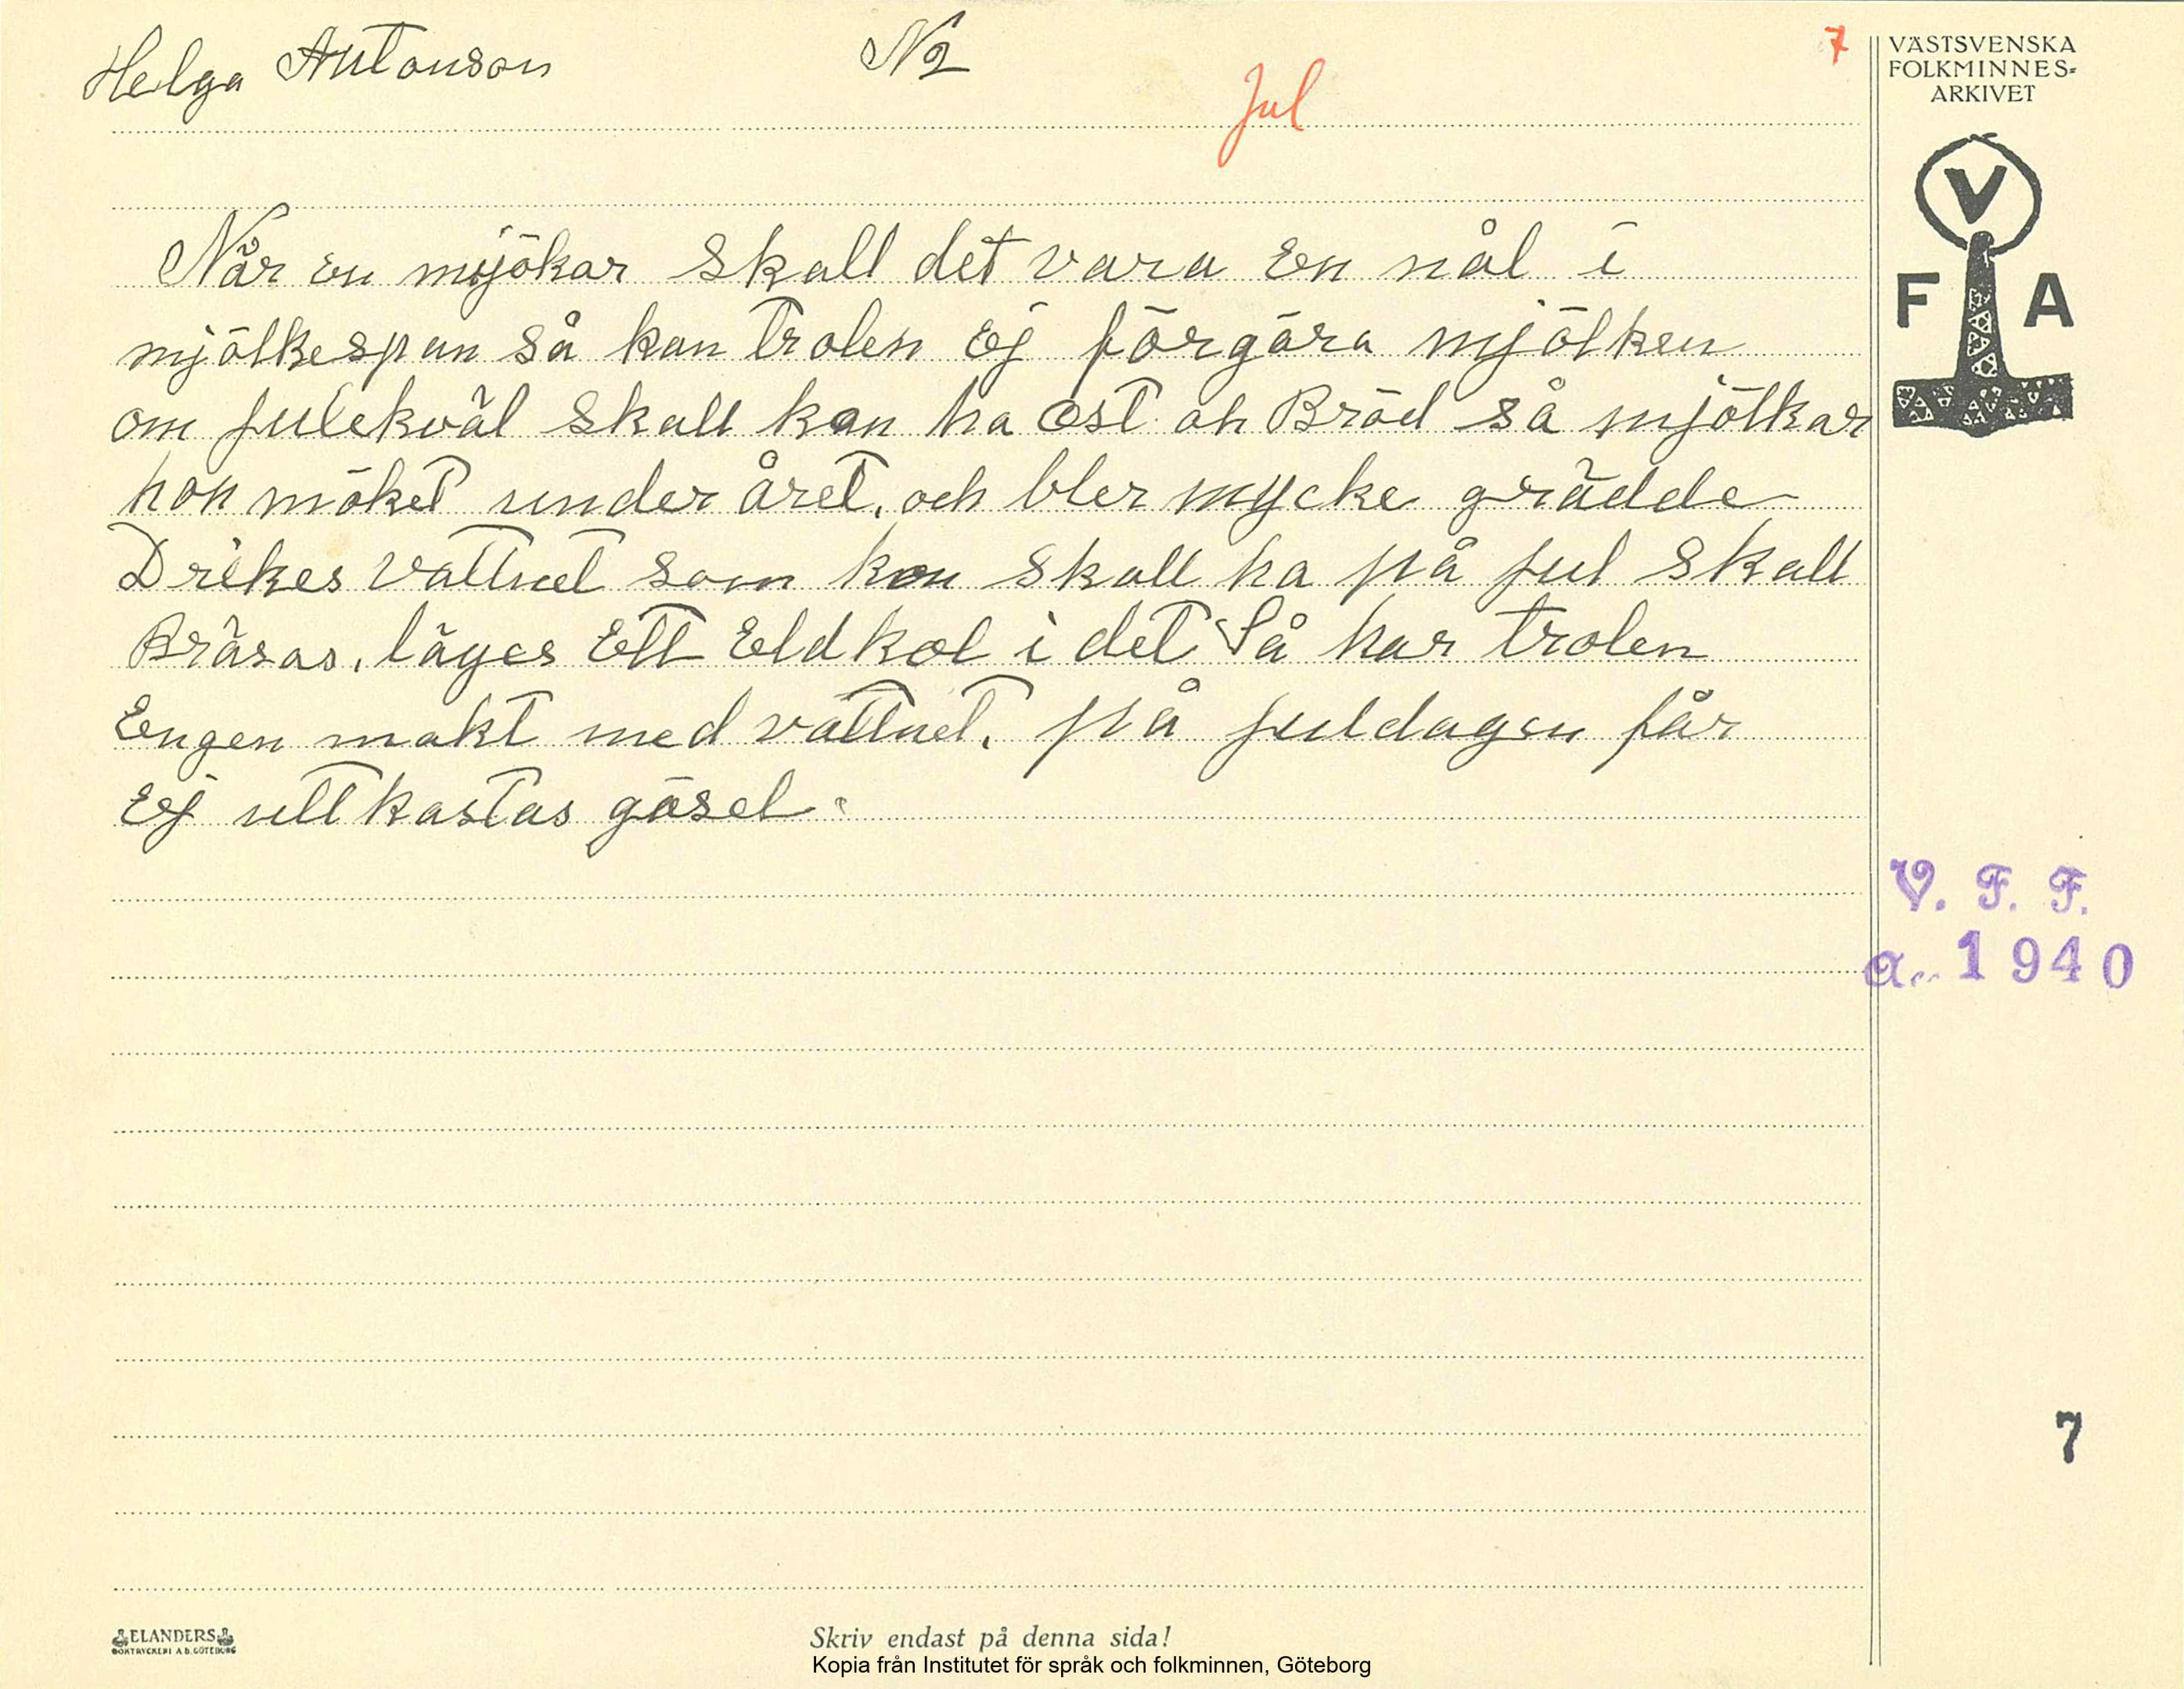 Helga Antonson N2 7
Jul
VÄSTSVENSKA
FOLKMINNES-
ARKIVET
V
F A
När en mjökar skall det vara en nål i
mjölkespan så kan trolen ej förgöra mjölken
om julekväl skall kon ha ost oh Bröd så mjölkar
hon möket under året, och bler mycke grädde
Drikes vattnet som kon skall ha på jul skall
Bräsas, läges Ett Eldkol i det Så har trolen
Engen makt med vattnet. på juldagen får
Ej utt kastas gösel.
V. F. F.
a. 1940
7
ELANDERS
BOKTRYCKERI A.B. GÖTEBORG
Skriv endast på denna sida!
Kopia från Institutet för språk och folkminnen, Göteborg